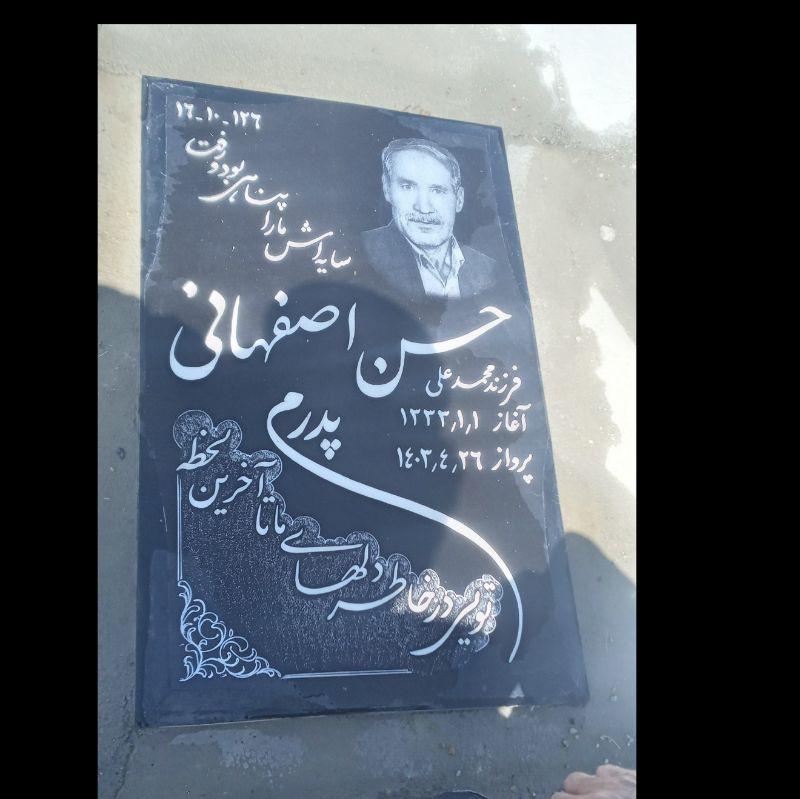 ۱۶-۱۰-۱۲۶
سایه‌اش ما را پناهی بود و رفت
حسن اصفهانی
فرزند محمد علی
آغاز ۱۳۳۳٫۱٫۱
پرواز ۱۴۰۳٫۴٫۲۶
پدرم
تویی در خاطر دلهای ما تا آخرین لحظه